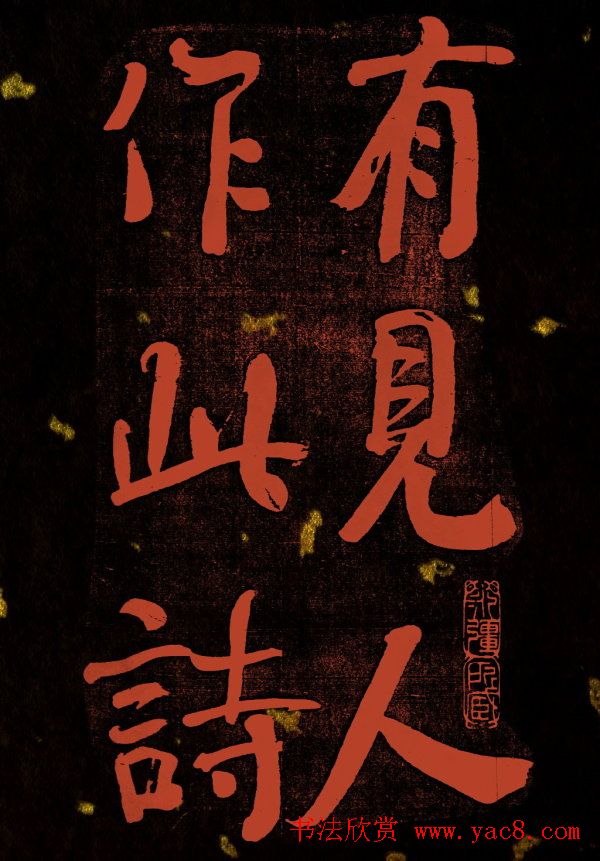 有見人
作此詩
书法欣赏 www.yac8.com